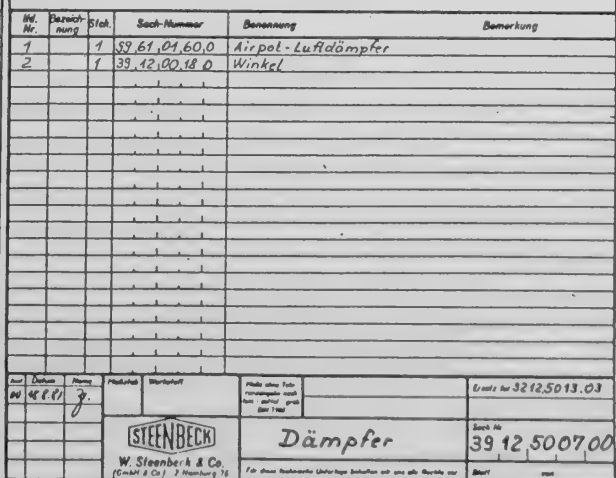 lfd. Nr. Bezeich-nung Stck. Sach-Nummer Benennung Bemerkung
1 1 59,61,01,60,0 Airpot-Luftdämpfer
2 1 39,12,00,18 0 Winkel
Datum Name Maßstab Werkstoff Maße ohne Tole-
Ersatz für 3212,5013.03
STEENBECK
W. Steenbeck & Co.
(GmbH & Co) 2 Hamburg 76
Dämpfer
Sach Nr.
39 12,50 07,00
Für diese technische Unterlage behalten wir uns alle Rechte vor
Blatt von